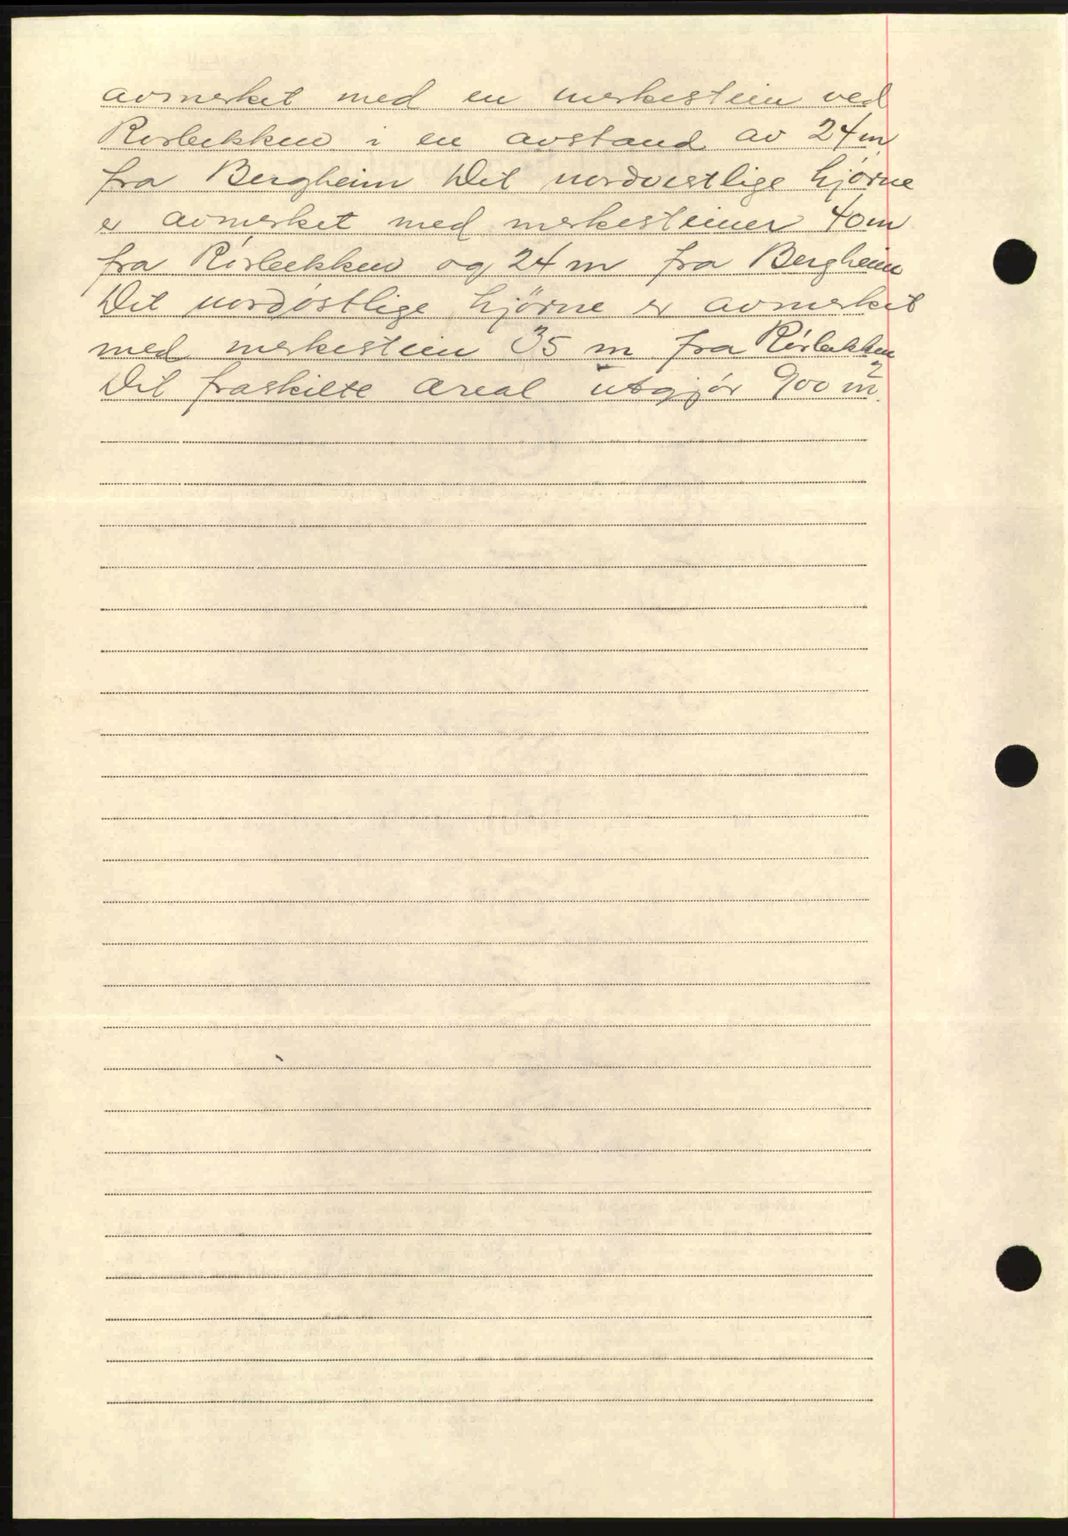 avmerket med en merkestein ved
Rörbekken i en avstand av 24 m
fra Bergheim Det nordvestlige hjörne
er avmerket med merkesteiner 40 m
fra Rörbekken og 24 m fra Bergheim
Det nordöstlige hjörne er avmerket
med merkestein 35 m fra Rörbekken
Det fraskilte areal utgjör 900 m²